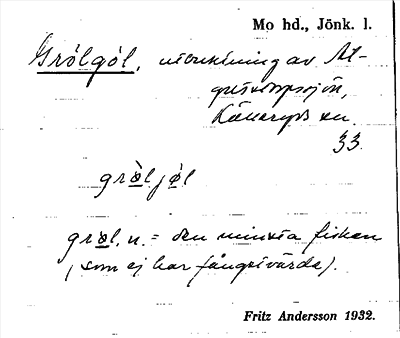 Mo hd., Jönk. l.
Grölgöl, utbuktning av Al-
gustorpasjön,
Källeryds sn.
33.
gröl jöl
gröl, n. = den minsta fisken
(som ej har fångstvärde).
Fritz Andersson 1932.